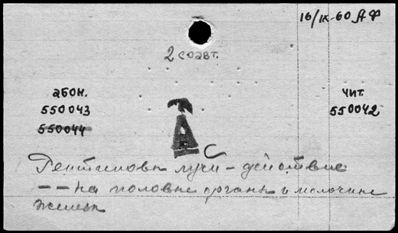 16/IX-60 АФ
2 соавт.
абон.
чит.
550043
550042
550044
Рентгеновы лучи – действие
– – на половые органы и молочные
железы